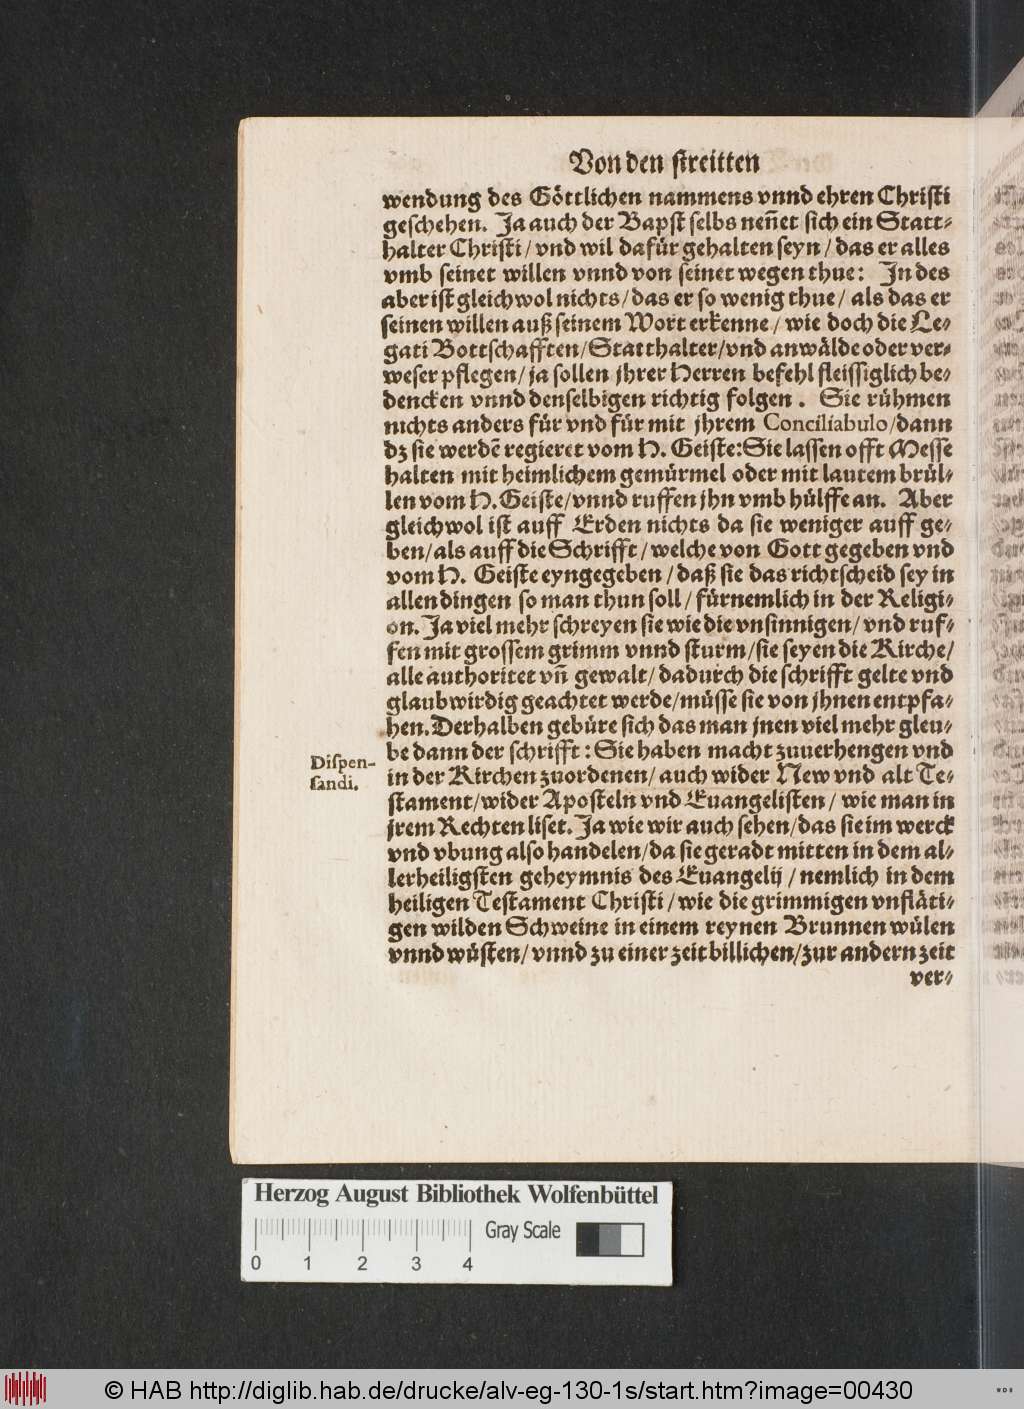 Von den streitten
wendung des Göttlichen nammens vnnd ehren Christi
geschehen. Ja auch der Bapst selbs neñet sich ein Statt⸗
halter Christi / vnd wil dafür gehalten seyn / das er alles
vmb seinet willen vnnd von seinet wegen thue: In des
aber ist gleichwol nichts / das er so wenig thue / als das er
seinen willen auß seinem Wort erkenne / wie doch die Le⸗
gati Bottschafften / Statthalter / vnd anwälde oder ver⸗
weser pflegen / ja sollen jhrer Herren befehl fleissiglich be⸗
dencken vnnd denselbigen richtig folgen . Sie rühmen
nichts anders für vnd für mit jhrem Conciliabulo / dann
dz sie werdẽ regieret vom H. Geiste: Sie lassen offt Messe
halten mit heimlichem gemürmel oder mit lautem brül⸗
len vom H. Geiste / vnnd ruffen jhn vmb hülffe an. Aber
gleichwol ist auff Erden nichts da sie weniger auff ge⸗
ben / als auff die Schrifft / welche von Gott gegeben vnd
vom H. Geiste eyngegeben / daß sie das richtscheid sey in
allen dingen so man thun soll / fürnemlich in der Religi⸗
on. Ja viel mehr schreyen sie wie die vnsinnigen / vnd ruf⸗
fen mit grossem grimm vnnd sturm / sie seyen die Kirche /
alle authoritet vñ gewalt / dadurch die schrifft gelte vnd
glaubwirdig geachtet werde / müsse sie von jhnen entpfa⸗
hen. Derhalben gebüre sich das man jnen viel mehr gleu⸗
be dann der schrifft : Sie haben macht zuuerhengen vnd
Dispen-
sandi.
in der Kirchen zuordenen / auch wider New vnd alt Te⸗
stament / wider Aposteln vnd Euangelisten / wie man in
jrem Rechten liset. Ja wie wir auch sehen / das sie im werck
vnd vbung also handelen / da sie geradt mitten in dem al⸗
lerheiligsten geheymnis des Euangelij / nemlich in dem
heiligen Testament Christi / wie die grimmigen vnfläti⸗
gen wilden Schweine in einem reynen Brunnen wülen
vnnd wüsten / vnnd zu einer zeit billichen / zur andern zeit
ver⸗
Herzog August Bibliothek Wolfenbüttel
Gray Scale
0 1 2 3 4
© HAB http://diglib.hab.de/drucke/alv-eg-130-1s/start.htm?image=00430